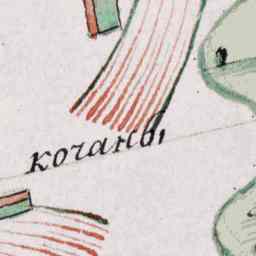 кочаны